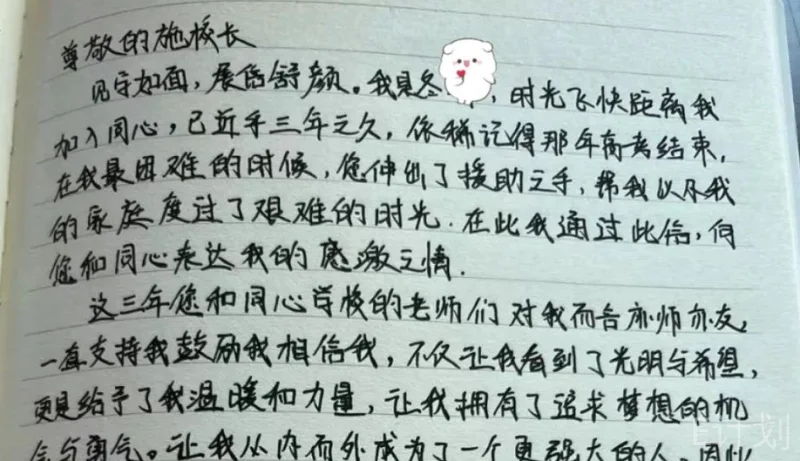 尊敬的施校长
见字如面，展信舒颜。我是冬，时光飞快距离我
加入同心，已近乎三年之久，依稀记得那年高考结束，
在我最困难的时候，您伸出了援助之手，帮我以及我
的家庭度过了艰难的时光．在此我通过此信，向
您和同心表达我的感激之情．
这三年您和同心学校的老师们对我而言亦师亦友，
一直支持我鼓励我相信我，不仅让我看到了光明与希望，
更是给予了我温暖和力量，让我拥有了追求梦想的机
会与勇气。让我从内而外成为了一个更强大的人，因此
计划